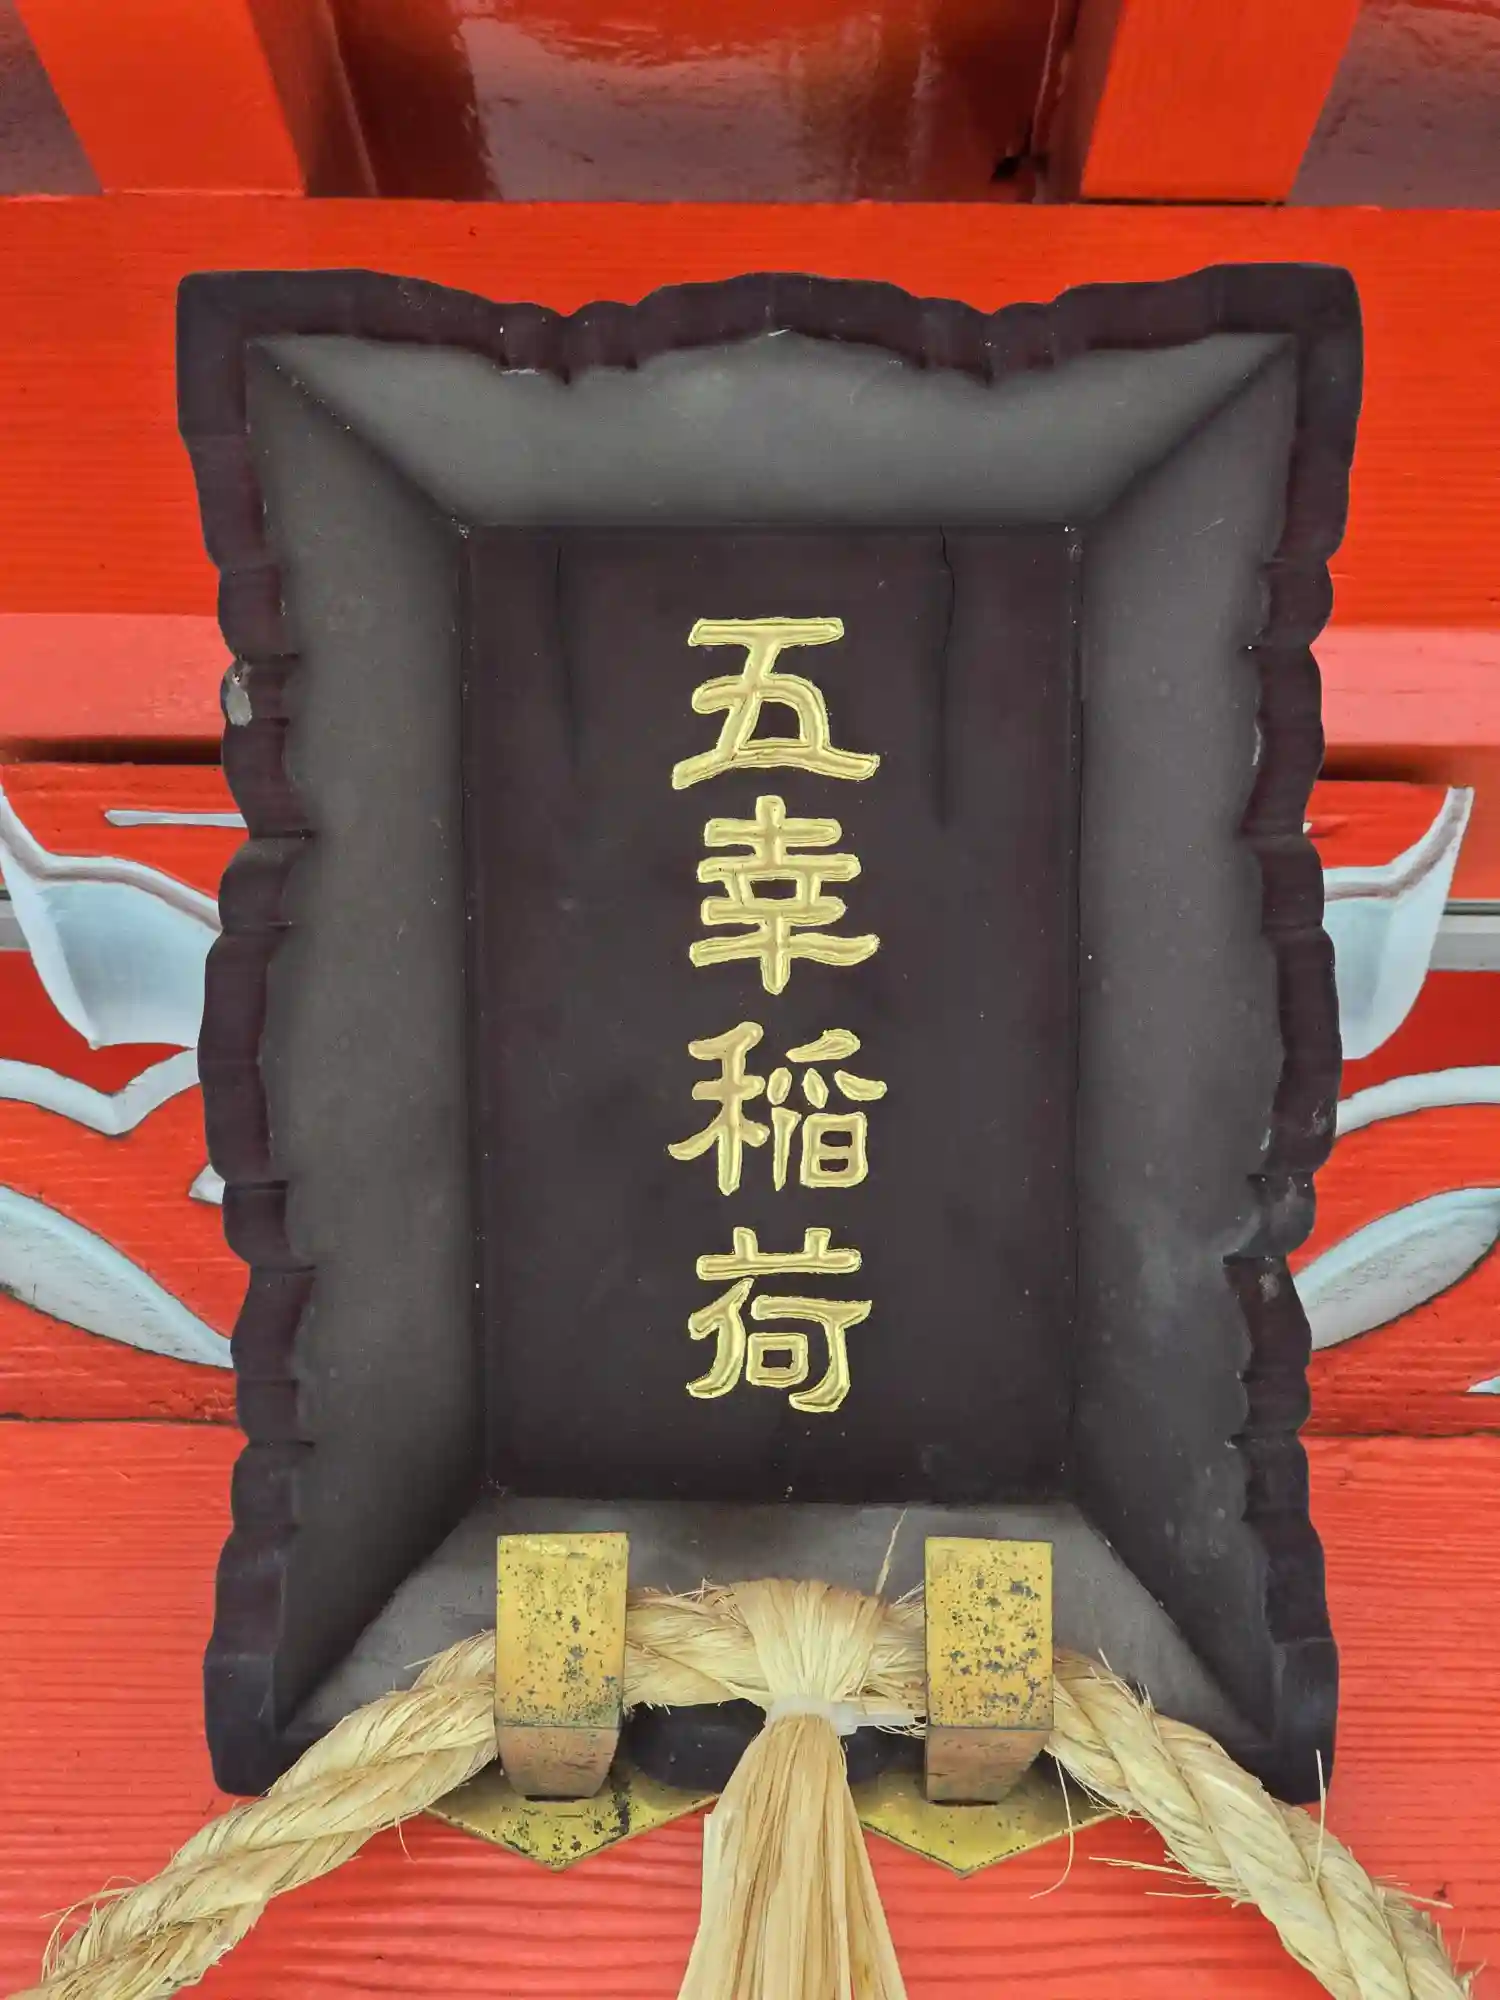 五幸稲荷